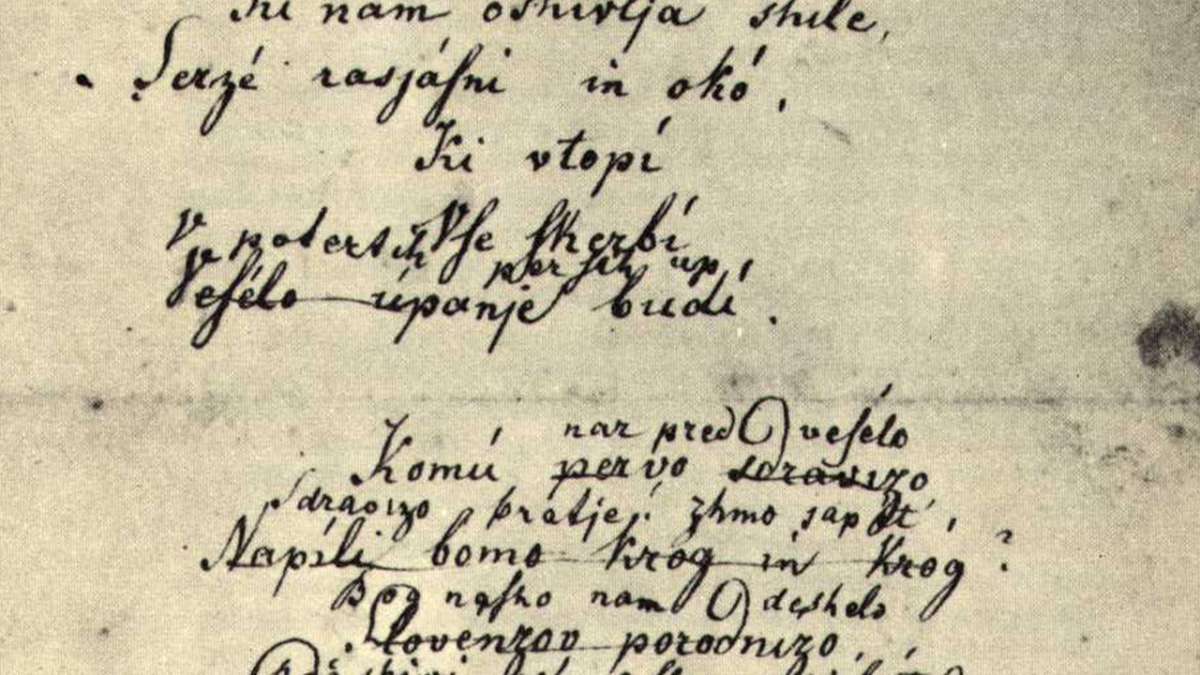 Ki nam oshivlja shile,
Serzé rasjásni in okó,
Ki vtopí
Vse skerbí
V potertih persih up
Vesélo úpanje budí.
nar pred vesélo
Komú pervo sdravizo
Sdravizo, bratje! zhmo sapét',
Napíli bomo krog in krog?
Bog nasho nam deshelo
Slovenzov porodnizo,